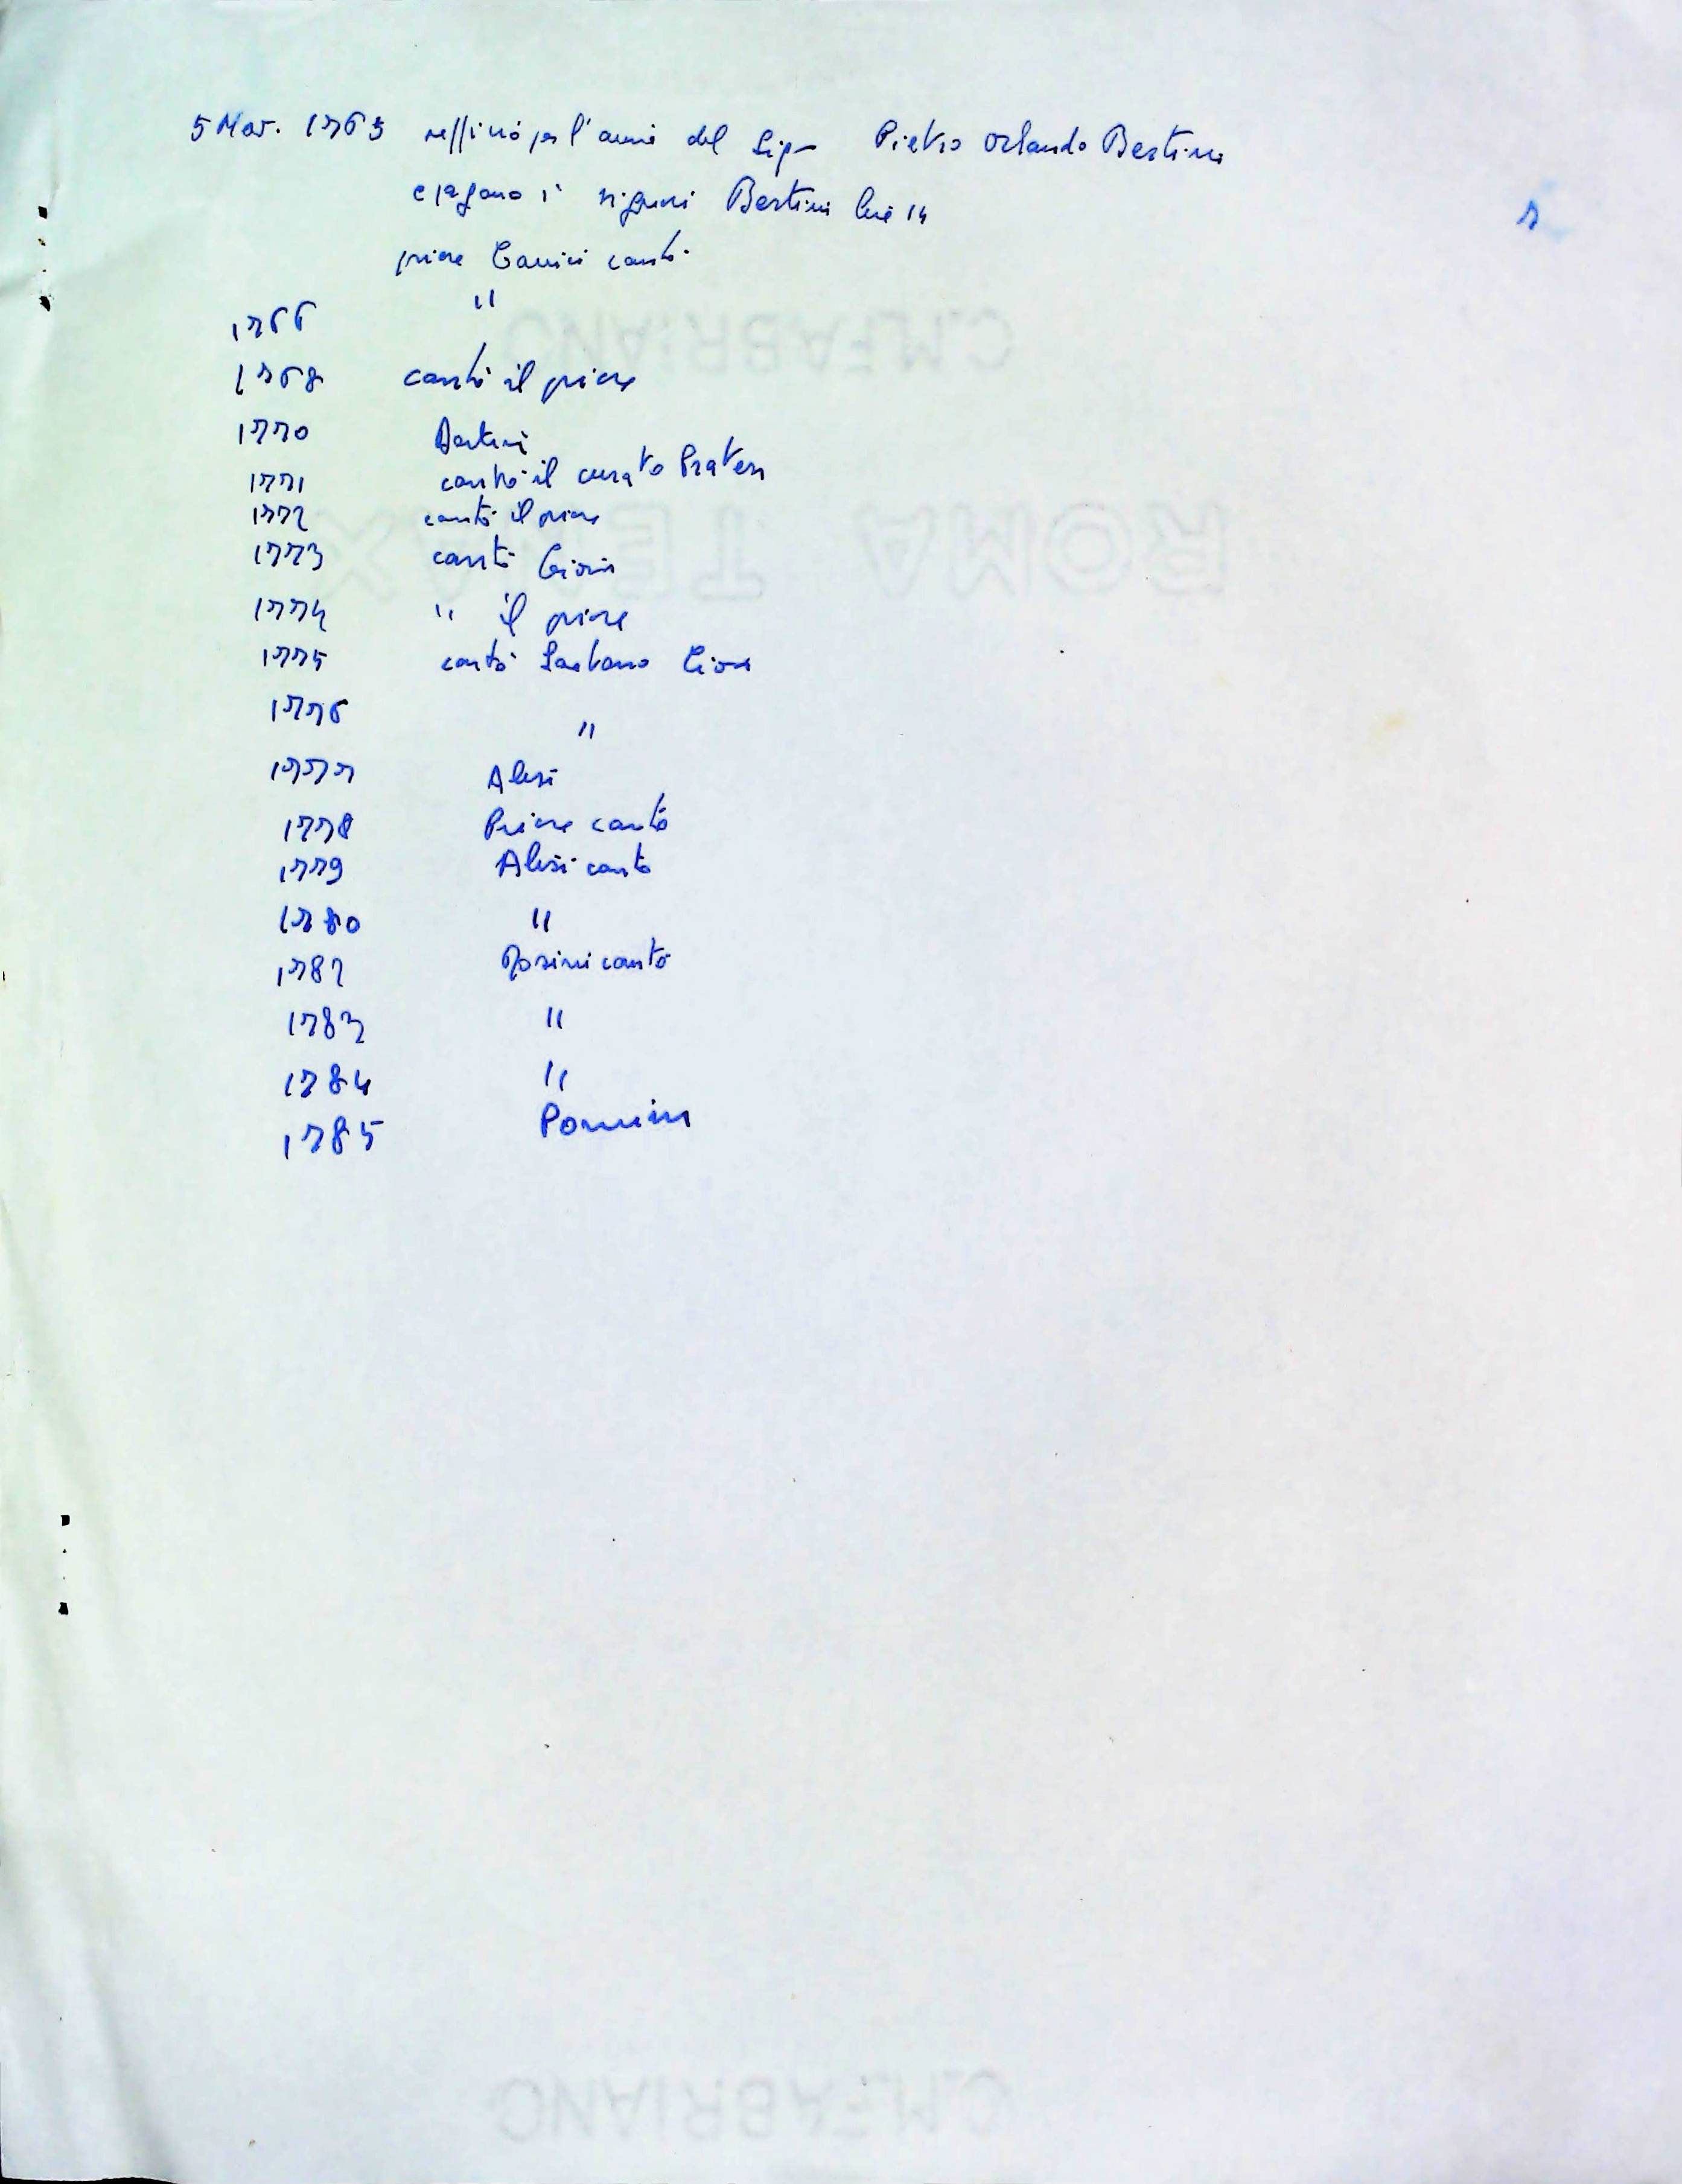 5 Mar. 1765 uffizio per l'anima del Sigr Pietro Orlando Bertini
e pagano i signori Bertini lire 14
priore cantò
1766 "
1768 cantò il priore
1770 Bertini
1771 cantò il curato Pratesi
1772 cantò il priore
1773 cantò Cioni
1774 " il priore
1775 cantò Gaetano Cioni
1776 "
1777 Alesi
1778 Priore cantò
1779 Alesi cantò
1780 "
1782 Rosini cantò
1783 "
1784 "
1785 Ponini
C.M.FABRIANO
ROMA TEMAX
C.M.FABRIANO